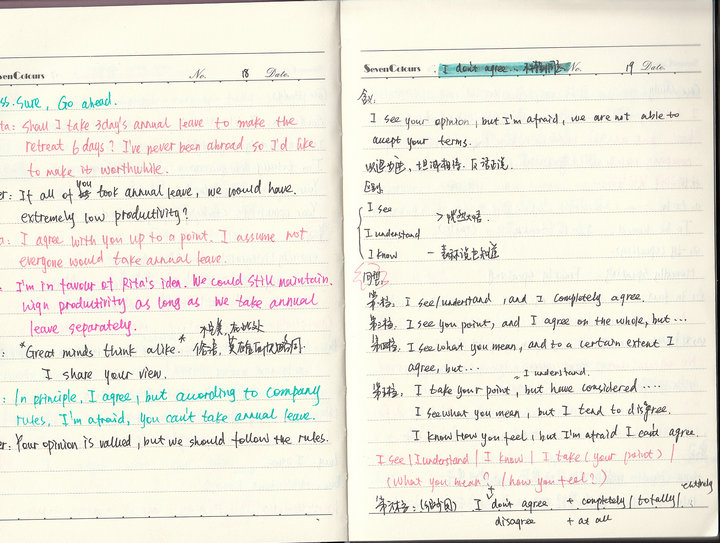 SevenColours No. 18 Date.
ss. Sure, Go ahead.
ta: Shall I take 3day's annual leave to make the
retreat 6 days? I've never been abroad so I'd like
to make it worthwhile.
er: If all of you took annual leave, we would have
extremely low productivity?
a: I agree with you up to a point. I assume not
everyone would take annual leave.
I'm in favour of Rita's idea. We could still maintain
productivity as long as we take annual
leave separately.
: *Great minds think alike.* 俗语, 英雄所见略同.
I share your view.
: In principle, I agree, but according to company
rules, I'm afraid, you can't take annual leave.
er: Your opinion is valued, but we should follow the rules.
SevenColours I don't agree.. No. 19 Date.
I see your opinion, but I'm afraid, we are not able to
accept your terms.
以退为进,
区别:
I see > 恍然大悟
I understand
I know
同意
第一档: I see/understand, and I completely agree.
第二档: I see you point, and I agree on the whole, but...
I see what you mean, and to a certain extent I
agree, but...
I understand.
I take your point, but have considered ....
I see what you mean, but I tend to disgree.
I know how you feel, but I'm afraid I can't agree.
I see | I understand | I know | I take (your point) |
(what you mean? / how you feel?)
I don't agree + completely / totally / entirely
disagree + at all